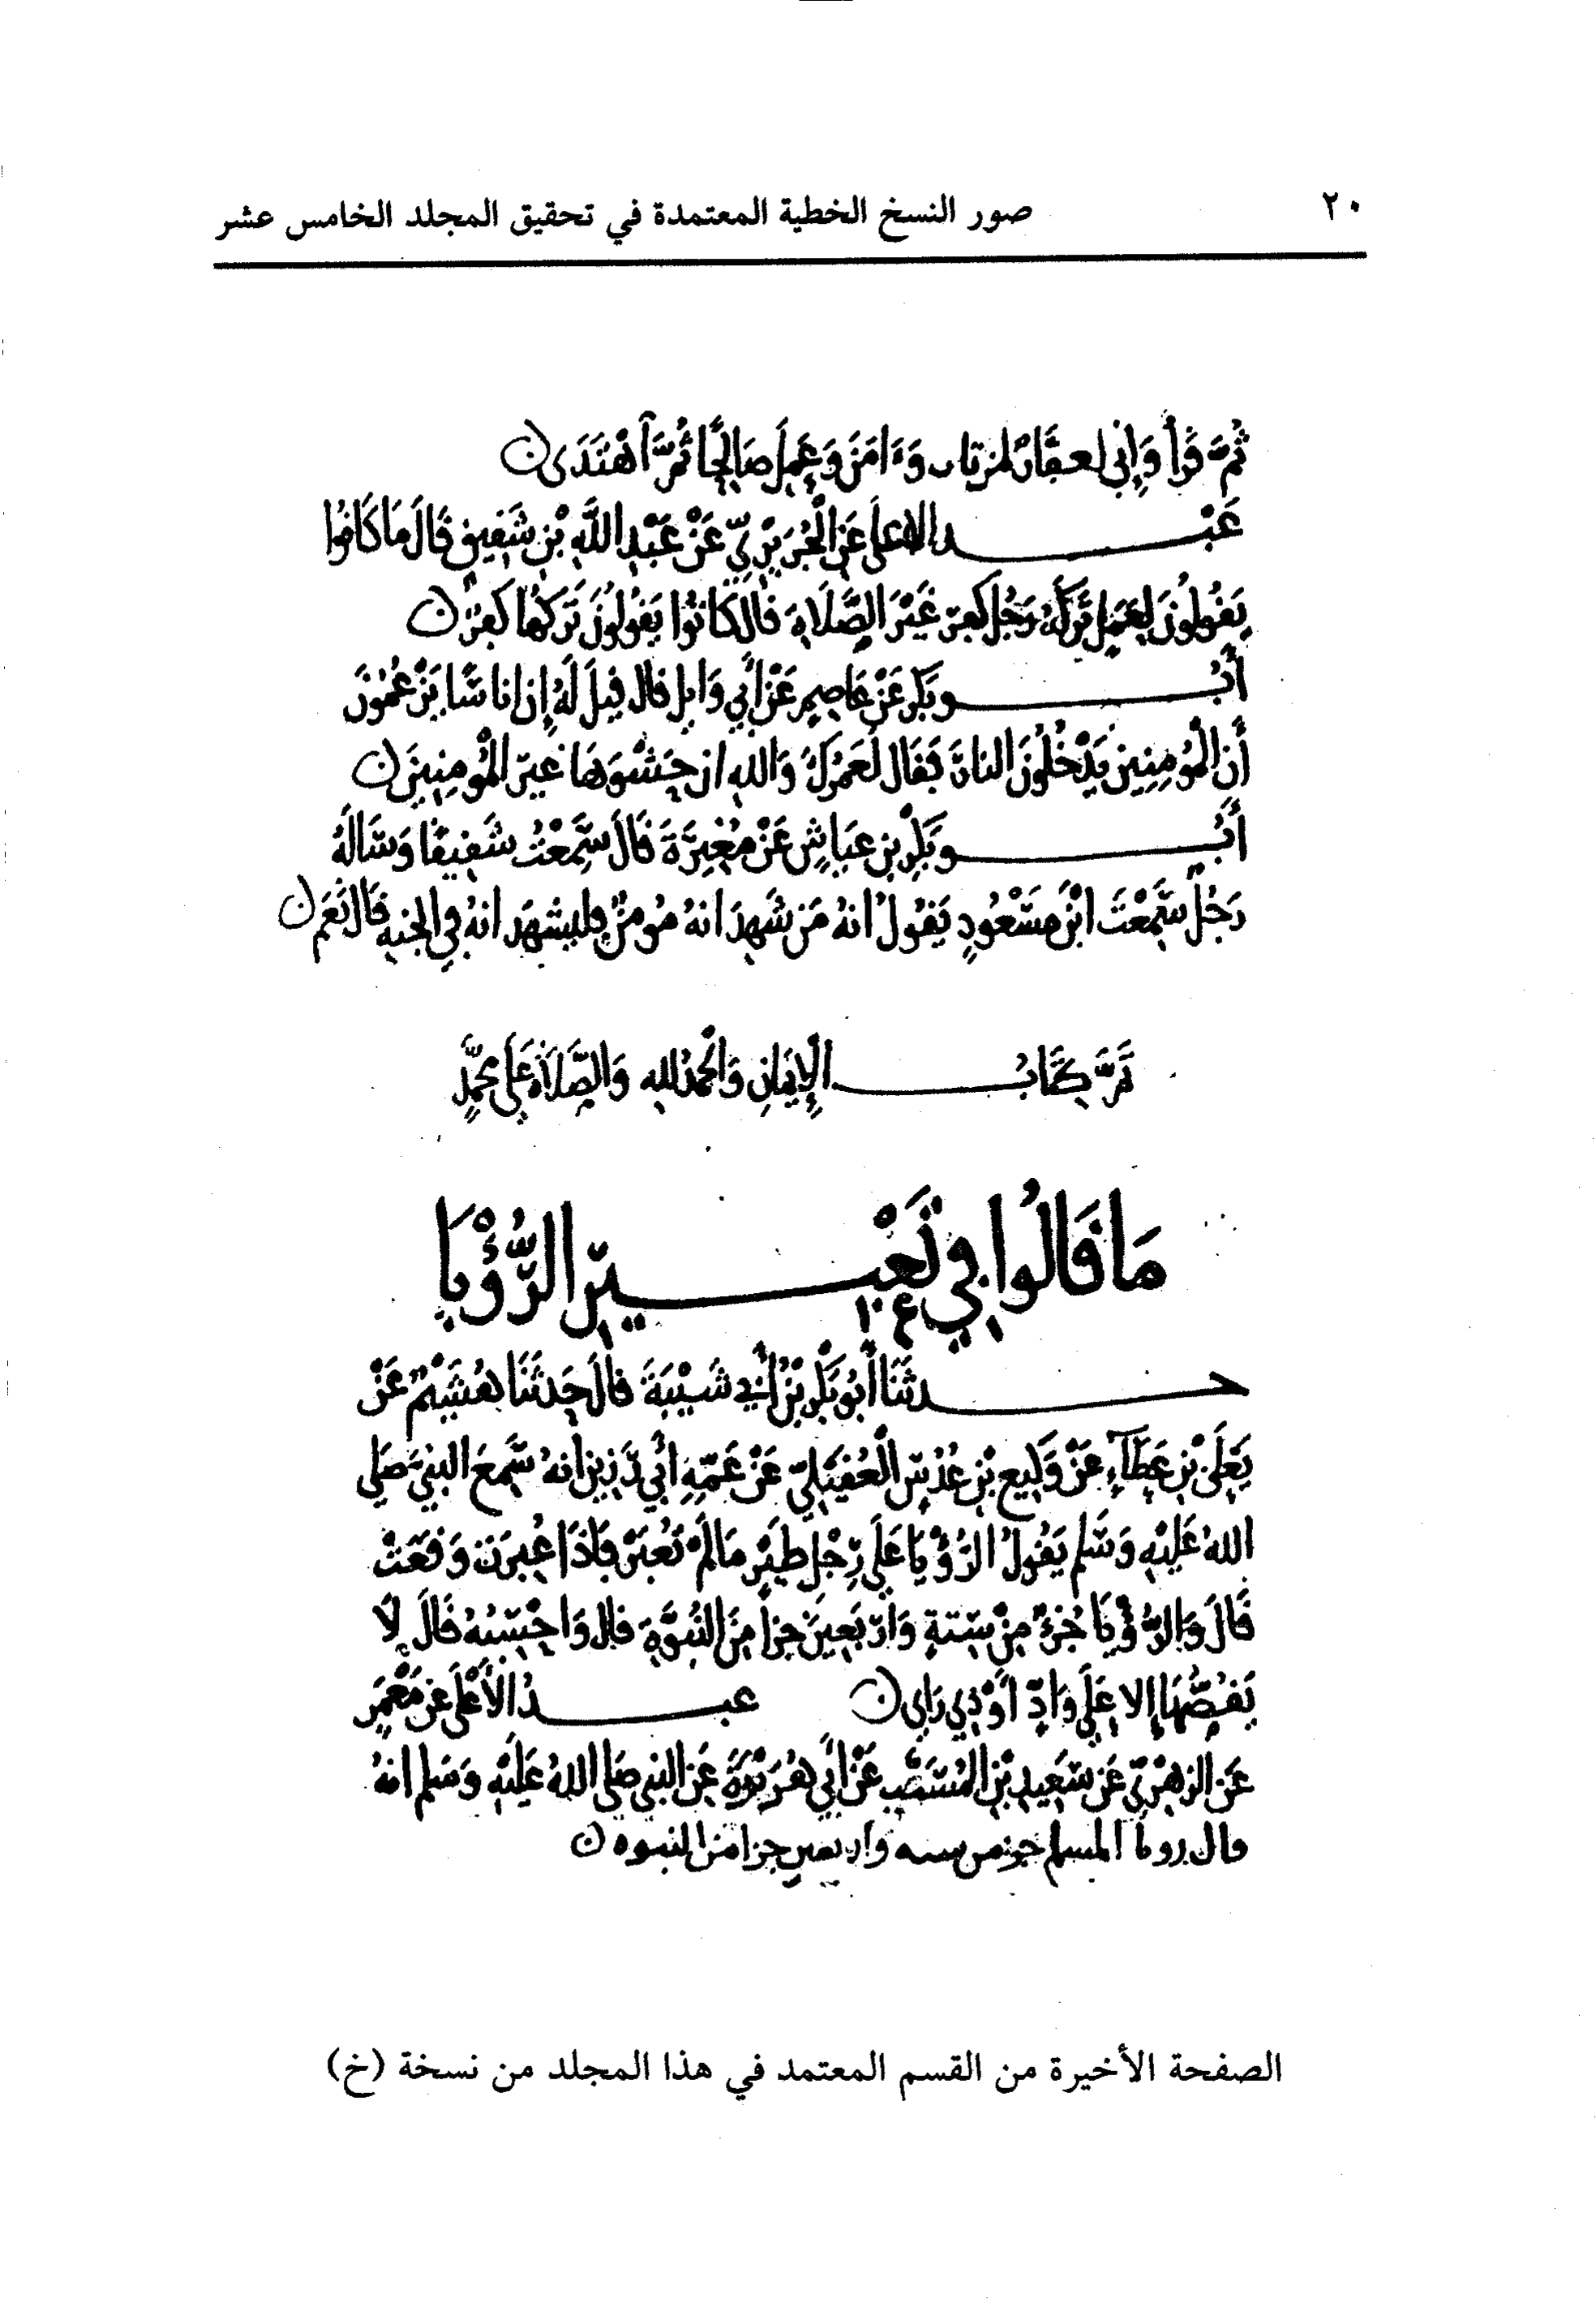 ٢٠
صور النسخ الخطية المعتمدة في تحقيق المجلد الخامس عشر
ثُمَّ قَرَأَ وَإِنِّي لغفَّارٌ لمن تاب وَءَامَنَ وَعَمِلَ صَالِحًا ثُمَّ اهْتَدَى ن
عَبْد الاعلَى عَنِ الْجُرَيْرِيِّ عَنْ عَبْدِ اللَّهِ بْنِ شَقِيقٍ قَالَ مَا كَانُوا
يَقُولُونَ لِعَمَلٍ تَرَكَهُ رَجُلٌ كفر غَيْرَ الصَّلَاةِ قَالَ كَانُوا يَقُولُونَ تَرْكُهَا كُفْرٌ ن
أَبُو بَكْرٍ عَنْ عَاصِمٍ عَنْ أَبِي وَايِلٍ قَالَ قِيلَ لَهُ إِن اناسًا يَزْعُمُونَ
أَنَّ الْمُؤمِنِينَ يَدْخُلُونَ النارَ فَقَالَ لَعَمْرُكَ وَاللهِ ان حَشْوَهَا غَيْرُ الْمُؤمِنِينَ ن
أَبُو بَكْرِ بن عَيَاشٍ عَنْ مُغِيرَةَ قَالَ سَمِعْتُ شَقِيقًا وَسَالَهُ
رَجُلٌ سَمِعْتَ ابْنَ مَسْعُودٍ يَقُولُ انهُ مَن شَهِدَ انهُ مُومِنٌ فليشهد انهُ فِي الجنهِ قَالَ نَعَم ن
تَمَّ كِتَابُ الإِيمَانِ وَالحَمْدُ لِلهِ وَالصَّلَاةُ عَلَى مُحَمَّدٍ
مَا قَالُوا فِي تَعْبِيرِ الرُّؤْيَا
حدثَنَا أَبُو بَكْرِ بْنُ أَبِي شَيْبَةَ قَالَ حَدثَنَا هُشَيْمٌ عَنْ
يَعْلَى بْنِ عَطَآءٍ عَنْ وَكِيعِ بْنِ عُدُسٍ الْعُقَيْلِيِّ عَنْ عَمِّهِ أَبِي رَزِينٍ انهُ سَمِعَ النبيَّ صَلى
اللهُ عَلَيْهِ وَسَلم يَقُولُ الرُّؤْيَا عَلَى رِجْلِ طَيْرٍ مَا لَمْ تُعْبَرْ فَإذَا عُبِرَت وَقَعَتْ
قَالَ وَالرُّؤْيَا جُزءٌ مِنْ سِتةٍ وَارْبَعِينَ جزأ مِنَ النُبُوَّةِ قال وَاحْسِبُهُ قَالَ لَا
يَقُصُّهَا إِلا عَلَى وَادٍّ أَوْ ذِي رَايٍ ن عبدُ الْأَعْلَى عَن مَعْمَرٍ
عَنِ الزهْرِيِّ عَن سَعِيدِ بْنِ المُسَيَّبِ عَنْ أَبِي هُرَيْرَةَ عَنِ النبي صَلى اللهُ عَلَيْهِ وَسَلم انهُ
قال رويا المسلم جزء من سته واربعين جزا من النبوه ن
الصفحة الأخيرة من القسم المعتمد في هذا المجلد من نسخة (خ)